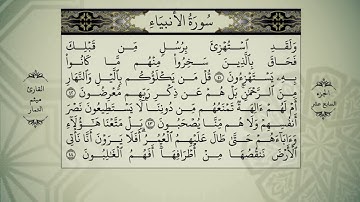 سُورَةُ الأَنبِيَاءِ
وَلَقَدِ ٱسْتُهْزِئَ بِرُسُلٍ مِّن قَبْلِكَ
فَحَاقَ بِٱلَّذِينَ سَخِرُوا۟ مِنْهُم مَّا كَانُوا۟
بِهِۦ يَسْتَهْزِءُونَ ٤١ قُلْ مَن يَكْلَؤُكُم بِٱلَّيْلِ وَٱلنَّهَارِ
مِنَ ٱلرَّحْمَٰنِ بَلْ هُمْ عَن ذِكْرِ رَبِّهِم مُّعْرِضُونَ ٤٢
أَمْ لَهُمْ ءَالِهَةٌ تَمْنَعُهُم مِّن دُونِنَا لَا يَسْتَطِيعُونَ نَصْرَ
أَنفُسِهِمْ وَلَا هُم مِّنَّا يُصْحَبُونَ ٤٣ بَلْ مَتَّعْنَا هَٰٓؤُلَآءِ
وَءَابَآءَهُمْ حَتَّىٰ طَالَ عَلَيْهِمُ ٱلْعُمُرُ أَفَلَا يَرَوْنَ أَنَّا نَأْتِى
ٱلْأَرْضَ نَنقُصُهَا مِنْ أَطْرَافِهَآ أَفَهُمُ ٱلْغَٰلِبُونَ ٤٤
الجزء
السابع عشر
القارئ
ميثم
التمار